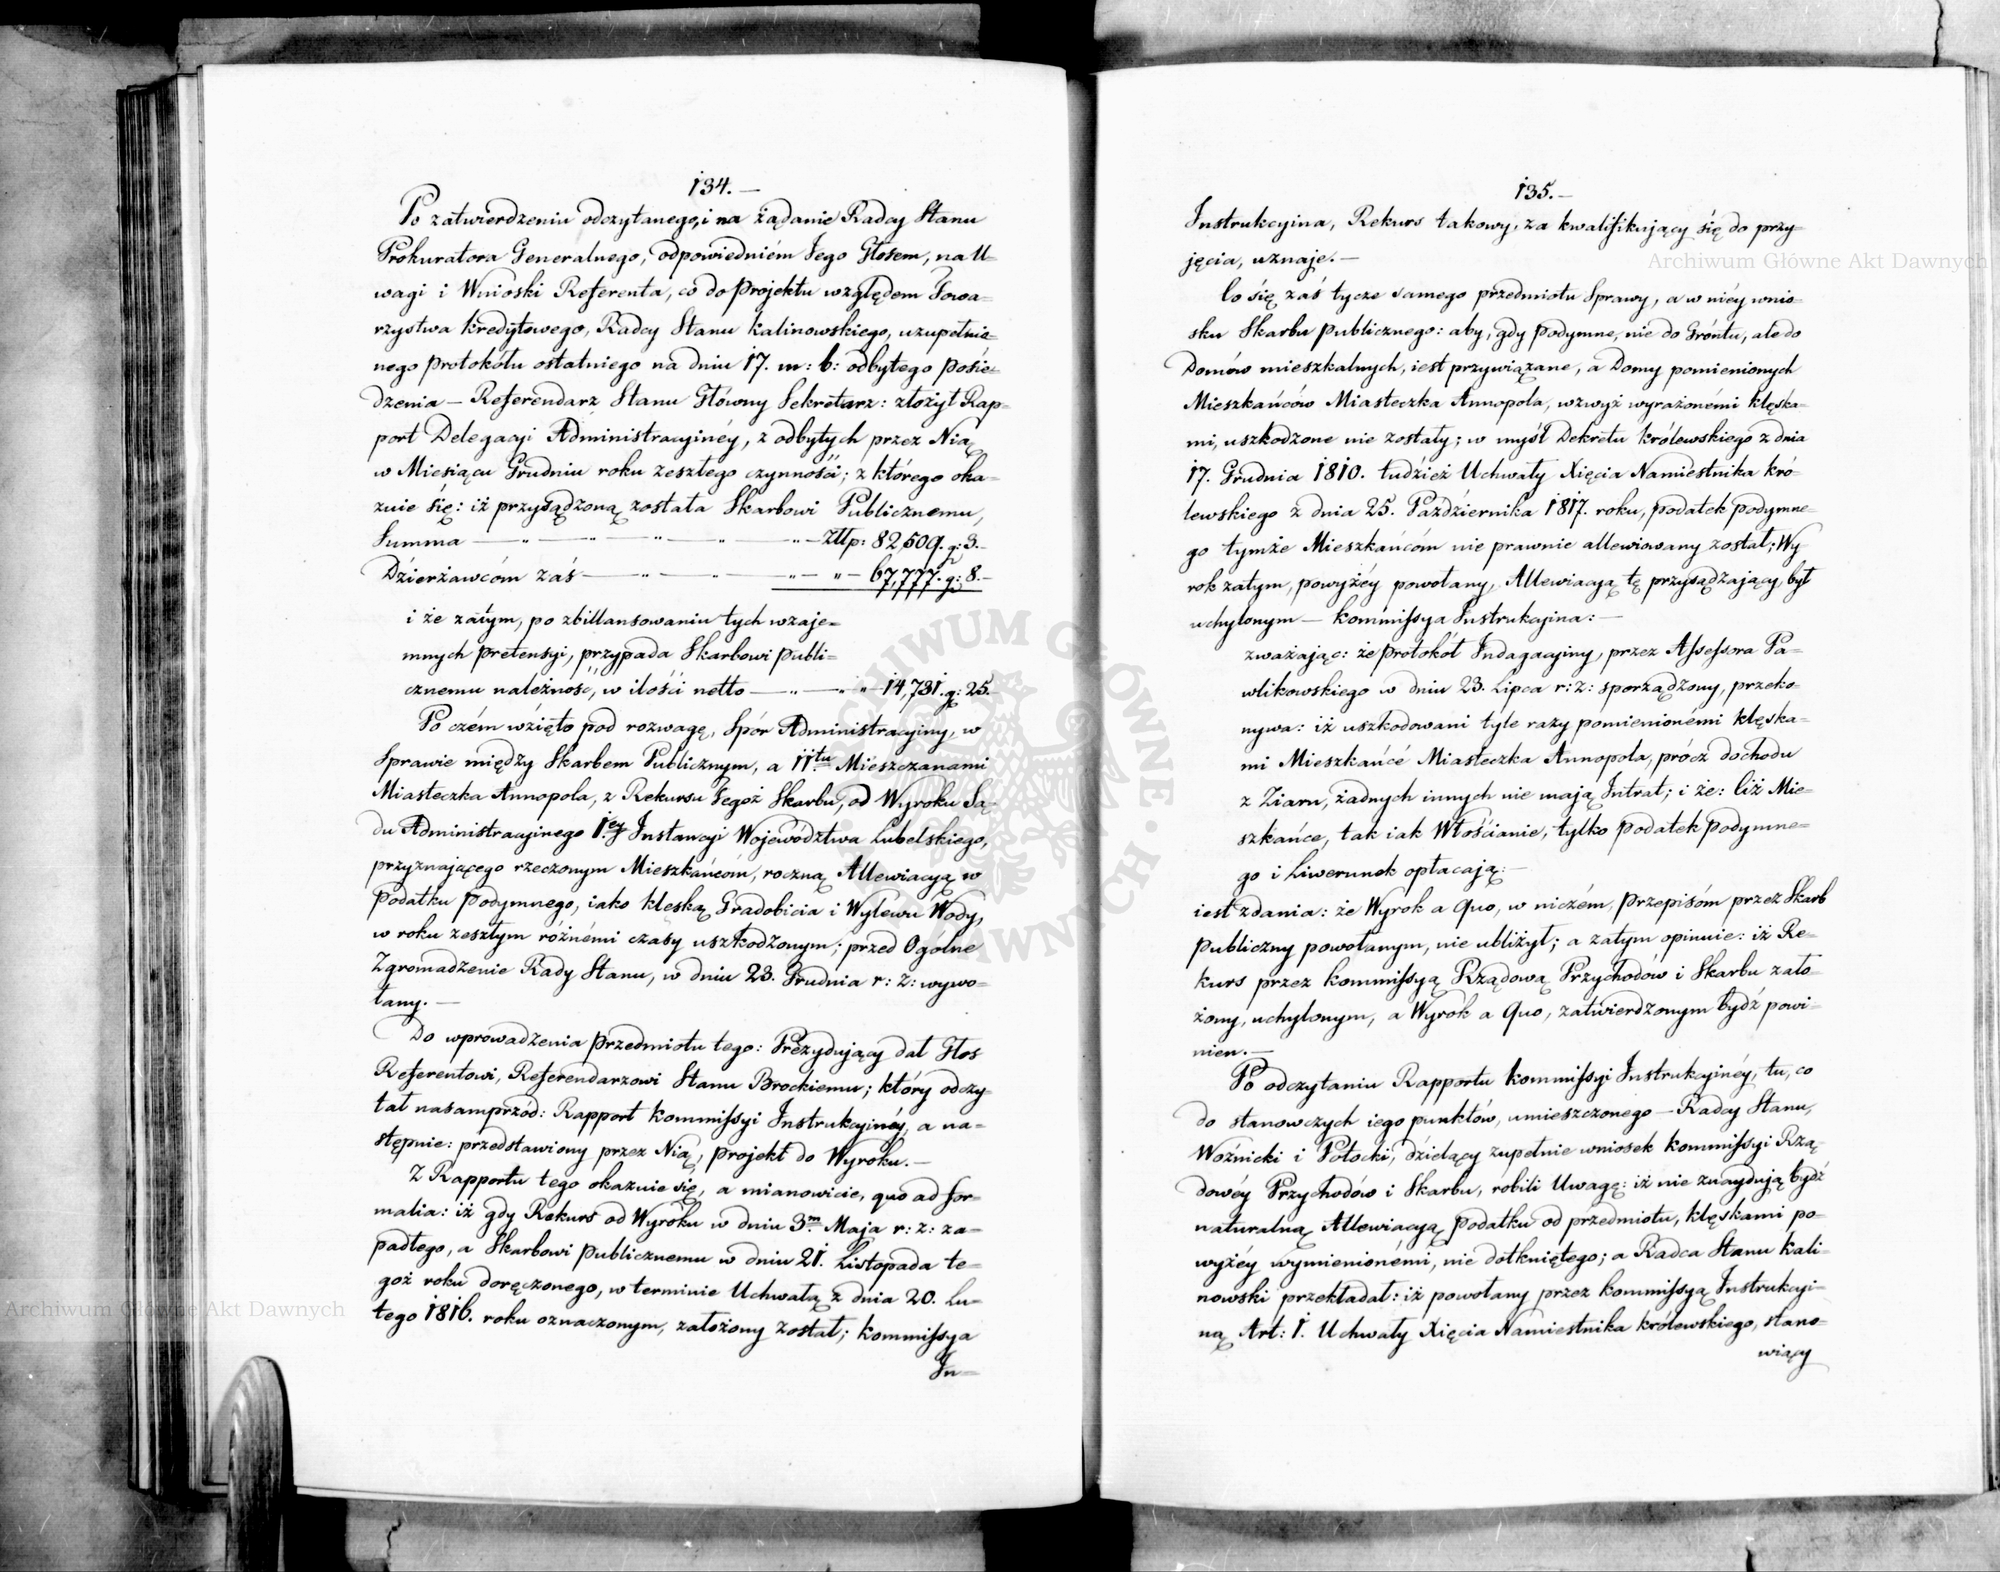 134.—
Po zatwierdzeniu odczytanego, i na żądanie Radcy Stanu
Prokuratora Generalnego, odpowiedniém Jego Głosem, na U-
wagi i Wnioski Referenta, co do Projektu względem Towa-
rzystwa Kredytowego, Radcy Stanu Kalinowskiego, uzupełnio-
nego Protokółu ostatniego na dniu 17. m: b: odbytego posie-
dzenia — Referendarz Stanu Główny Sekretarz: złożył Rap-
port Delegacyi Administracyinéy, z odbytych przez Nią
w Miesiącu Grudniu roku zeszłego czynności; z którego oka-
zuie się: iż przysądzoną została Skarbowi Publicznemu,
Summa — „ — „ — „ — „ — złłp: 82,509. g: 3.—
Dzierżawcóm zaś — „ — „ — „ — 67,777. g: 8.—
i że zatym, po zbillansowaniu tych wzaje=
mnych pretensyi, przypada Skarbowi Publi=
cznemu należność, w ilości netto — „ — „ — 14,731. g: 25.—
Po czém wzięto pod rozwagę, Spór Administracyiny, w
Sprawie między Skarbem Publicznym, a 11tu Mieszczanami
Miasteczka Annopola, z Rekursu Tegoż Skarbu, od Wyroku Są-
du Administracyinego 1.ey Instancyi Województwa Lubelskiego,
przyznającego rzeczonym Mieszkańcóm, roczną Allewiacyą w
Podatku Podymnego, iako klęską Gradobicia i Wylewu Wody,
w roku zeszłym różnémi czasy uszkodzonym; przed Ogólne
Zgromadzenie Rady Stanu, w dniu 23. Grudnia r: z: wywo-
łany.—
Do wprowadzenia Przedmiotu tego: Prezydujący dał Głos
Referentowi, Referendarzowi Stanu Brockiemu; który odczy-
tał nasamprzód: Rapport Kommissyi Instrukcyinéy, a na-
stępnie: przedstawiony przez Nią, Projekt do Wyroku.—
Z Rapportu tego okazuie się, a mianowicie, quo ad for-
malia: iż gdy Rekurs od Wyroku w dniu 3m Maja r: z: za-
padłego, a Skarbowi Publicznemu w dniu 21. Listopada te-
goż roku doręczonego, w terminie Uchwałą z dnia 20. Lu-
tego 1816. roku oznaczonym, założony został; Kommissya
In=
135.—
Instrukcyina, Rekurs takowy, za kwalifikujący się do przy-
jęcia, uznaje.—
Co się zaś tycze samego przedmiotu Sprawy, a w niéy wnio-
sku Skarbu Publicznego: aby, gdy Podymne, nie do Gróntu, ale do
Domów mieszkalnych, iest przywiązane, a Domy pomienionych
Mieszkańców Miasteczka Annopola, wzwyż wyrażonémi klęska-
mi, uszkodzone nie zostały; w myśl Dekretu Królewskiego z dnia
17. Grudnia 1810. tudzież Uchwały Xięcia Namiestnika Kró-
lewskiego z dnia 25. Października 1817. roku, podatek podymne-
go tymże Mieszkańcóm nie prawnie allewiowany został; Wy-
rok zatym, powyżéy powołany, Allewiacyą tę przysądzający, był
uchylonym — Kommissya Instrukcyina:—
zważając: że Protokół Indagacyiny, przez Assessora Pa-
wlikowskiego w dniu 23. Lipca r: z: sporządzony, przeko-
nywa: iż uszkodowani tyle razy pomienionémi klęska-
mi Mieszkańcé Miasteczka Annopola, prócz dochodu
z Ziarn, żadnych innych nie mają Intrat; i że: Ciż Mie-
szkańce, tak iak Włościanie, tylko Podatek Podymne-
go i Liwerunek opłacają;—
iest zdania: że Wyrok a Quo, w niczém, przepisóm przez Skarb
Publiczny powołanym, nie ubliżył; a zatym opiniuie: iż Re-
kurs przez Kommissyą Rządową Przychodów i Skarbu zało-
żony, uchylonym, a Wyrok a Quo, zatwierdzonym bydź powi-
nien.—
Po odczytaniu Rapportu Kommissyi Instrukcyinéy, tu, co
do stanowczych iego punktów, umieszczonego — Radcy Stanu,
Woźnicki i Potocki, dzieląc zupełnie wniosek Kommissyi Rzą-
dowéy Przychodów i Skarbu, robili Uwagę: iż nie znaydują bydź
naturalną Allewiacyą Podatku od przedmiotu, klęskami po-
wyżéy wymienionémi, nie dotkniętego; a Radca Stanu Kali-
nowski przekładał: iż powołany przez Kommissyą Instrukcyi-
ną Art: 1. Uchwały Xięcia Namiestnika Królewskiego, stano-
wiący
Archiwum Główne Akt Dawnych
Archiwum Główne Akt Dawnych
ARCHIWUM GŁÓWNE AKT DAWNYCH